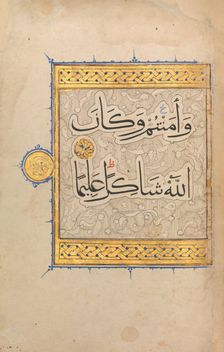 وَءَامَنتُمْ وَكَانَ
اللَّهُ شَاكِرًا عَلِيمًا